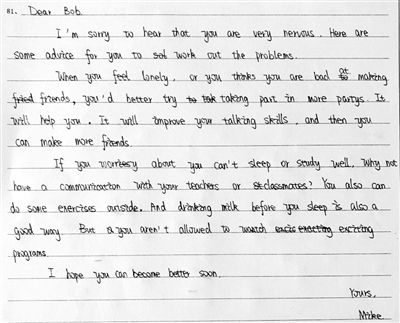 81. Dear Bob.
I'm sorry to hear that you are very nervous. Here are
some advice for you to work out the problems.
When you feel lonely, or you thinks you are bad at making
friends, you'd better try taking part in more partys. It
will help you. It will improve your talking skills, and then you
can make more friends.
If you worry about you can't sleep or study well, Why not
have a communication with your teachers or classmates? You also can
do some exercises outside. And drinking milk before you sleep is also a
good way. But you aren't allowed to watch exciting
programs.
I hope you can become better soon.
Yours,
Mike